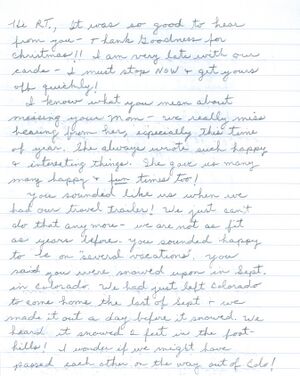 Hi R.T., It was so good to hear
from you - Thank Goodness for
Christmas!! I am very late with our
cards - I must stop NOW & get yours
off quickly!
I know what you mean about
missing your Mom - We really miss
hearing from her, especially this time
of year. She always wrote such happy
& interesting things! She gave us many
many happy & fun times too!
You sounded like us when we
had our travel trailer! We just can't
do that anymore - we are not as fit
as years before. You sounded happy
to be on "several vacations". You
said you were snowed upon in Sept.
in Colorado. We had just left Colorado
to come home the last of Sept & we
made it out a day before it snowed. We
heard it snowed 2 feet in the foot-
hills! I wonder if we might have
passed each other on the way out of Colo!